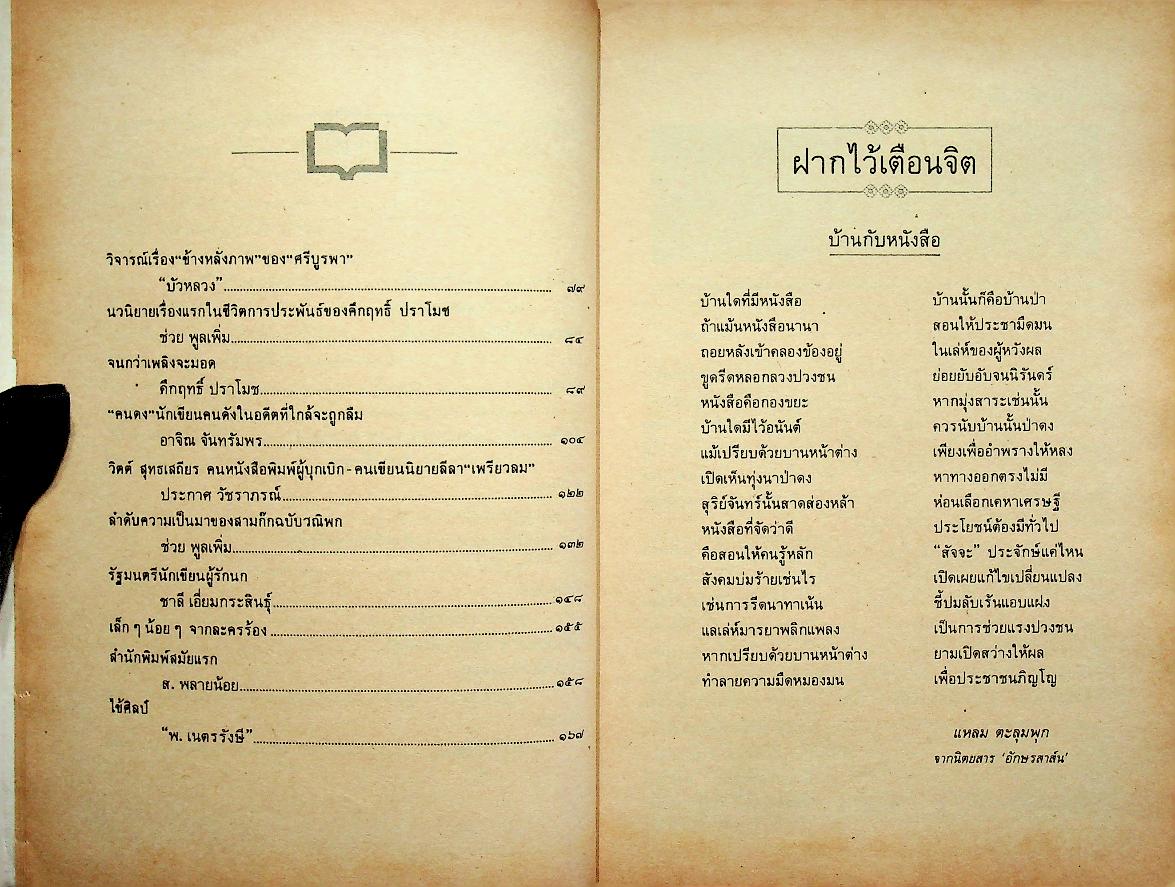 วิจารณ์เรื่อง“ข้างหลังภาพ”ของ“ศรีบูรพา”
“บัวหลวง”........................ ๗๙
นวนิยายเรื่องแรกในชีวิตการประพันธ์ของคึกฤทธิ์ ปราโมช
ช่วย พูลเพิ่ม........................ ๘๔
จนกว่าเพลิงจะมอด
คึกฤทธิ์ ปราโมช........................ ๘๙
“คนดง”นักเขียนคนดังในอดีตที่ใกล้จะถูกลืม
อาจิณ จันทรัมพร........................ ๑๐๔
วิตต์ สุทธเสถียร คนหนังสือพิมพ์ผู้บุกเบิก-คนเขียนนิยายลีลา“เพรียวลม”
ประกาศ วัชราภรณ์........................ ๑๒๒
ลำดับความเป็นมาของสามก๊กฉบับวณิพก
ช่วย พูลเพิ่ม........................ ๑๓๒
รัฐมนตรีนักเขียนผู้รักนก
ชาลี เอี่ยมกระสินธุ์........................ ๑๔๘
เล็ก ๆ น้อย ๆ จากละครร้อง........................ ๑๕๕
สำนักพิมพ์สมัยแรก
ส. พลายน้อย........................ ๑๕๘
ไข้ศิลป์
“พ. เนตรรังษี”........................ ๑๖๗
ฝากไว้เตือนจิต
บ้านกับหนังสือ
บ้านใดที่มีหนังสือ บ้านนั้นก็คือบ้านป่า
ถ้าแม้นหนังสือนานา สอนให้ประชามืดมน
ถอยหลังเข้าคลองข้องอยู่ ในเล่ห์ของผู้หวังผล
ขูดรีดหลอกลวงปวงชน ย่อยยับอับจนนิรันดร์
หนังสือคือกองขยะ หากมุ่งสาระเช่นนั้น
บ้านใดมีไว้อนันต์ ควรนับบ้านนั้นป่าดง
แม้เปรียบด้วยบานหน้าต่าง เพียงเพื่ออำพรางให้หลง
เปิดเห็นทุ่งนาป่าดง หาทางออกตรงไม่มี
สุริย์จันทร์นั้นสาดส่องหล้า ห่อนเลือกเคหาเศรษฐี
หนังสือที่จัดว่าดี ประโยชน์ต้องมีทั่วไป
คือสอนให้คนรู้หลัก “สัจจะ” ประจักษ์แค่ไหน
สังคมบ่มร้ายเช่นไร เปิดเผยแก้ไขเปลี่ยนแปลง
เช่นการรีดนาทาเน้น ชี้ปมลับเร้นแอบแฝง
แลเล่ห์มารยาพลิกแพลง เป็นการช่วยแรงปวงชน
หากเปรียบด้วยบานหน้าต่าง ยามเปิดสว่างให้ผล
ทำลายความมืดหมองมน เพื่อประชาชนภิญโญ
แหลม ตะลุมพุก
จากนิตยสาร ‘อักษรสาส์น’